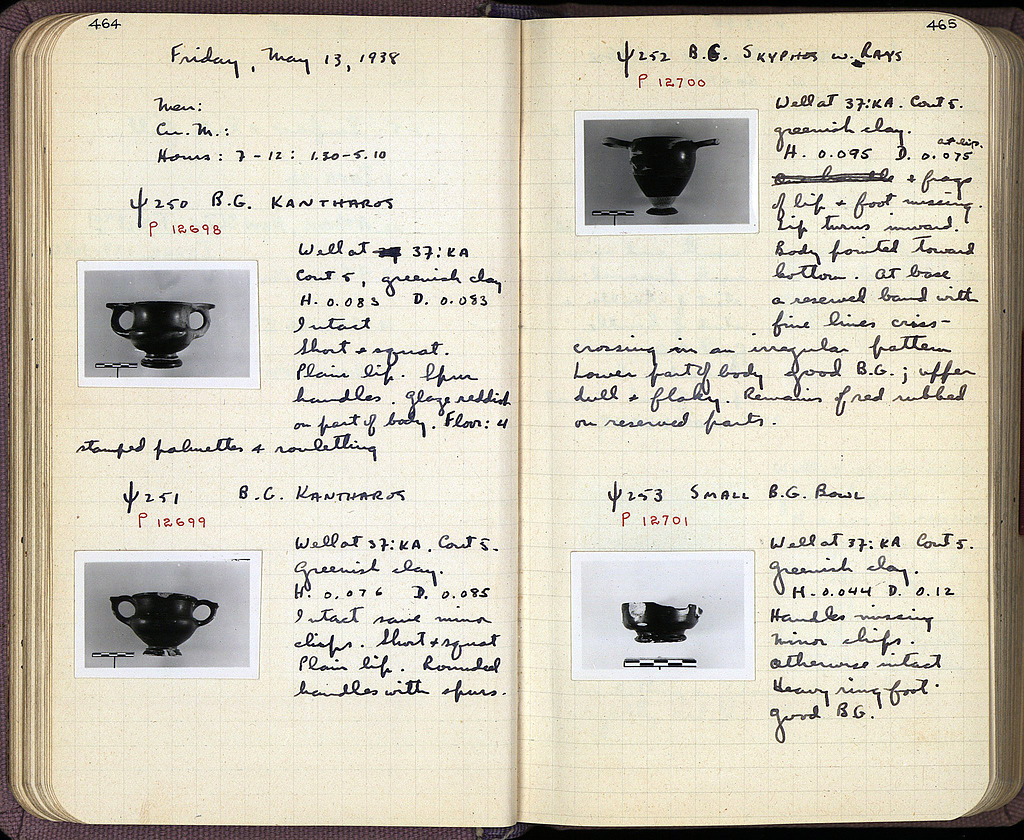 464
Friday, May 13, 1938
Men:
Cu. M.:
Hours: 7-12: 1.30-5.10
ψ250 B.G. KANTHAROS
P 12698
Well at 37:KA
Cont 5, greenish clay
H. 0.083 D. 0.083
Intact
Short + squat.
Plain lip. Spur
handles. Glaze reddish
on part of body. Floor: 4
stamped palmettes + rouletting
ψ251 B.G. KANTHAROS
P 12699
Well at 37:KA. Cont 5.
Greenish clay.
H. 0.076 D. 0.085
Intact save minor
chips. Short + squat
Plain lip. Rounded
handles with spurs.
465
ψ252 B.G. SKYPHOS W. RAYS
P 12700
Well at 37:KA. Cont 5.
greenish clay.
at lip.
H. 0.095 D. 0.075
+ frags
of lip + foot missing.
Lip turns inward.
Body pointed toward
bottom. At base
a reserved band with
fine lines criss-
crossing in an irregular pattern
Lower part of body good B.G.; upper
dull + flaky. Remains of red rubbed
on reserved parts.
ψ253 SMALL B.G. BOWL
P 12701
Well at 37:KA Cont 5.
Greenish clay.
H. 0.044 D. 0.12
Handles missing
minor chips.
otherwise intact
Heavy ring foot.
good B.G.